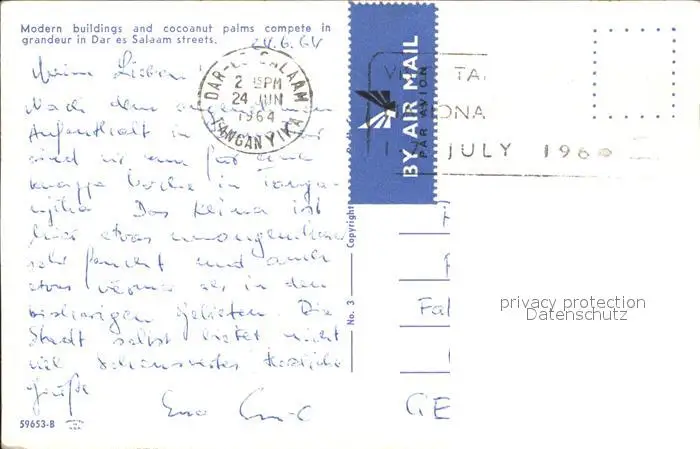 Modern buildings and cocoanut palms compete in
grandeur in Dar es Salaam streets.
24.6.64
Meine Lieben!
Nach dem
Aufenthalt in
sind wir nun für eine
knappe Woche in Tanga-
njika. Das Klima ist
hier etwas unangenehmer
sehr feucht und auch
etwas wärmer als in den
bisherigen Gebieten. Die
Stadt selbst bietet nicht
viel Sehenswertes. Herzliche
Grüße
DAR-ES-SALAAM
2 PM
24 JUN
1964
TANGANYIKA
BY AIR MAIL
PAR AVION
JULY 196
No. 3
Copyright
privacy protection
Datenschutz
Fal
GE
59653-B